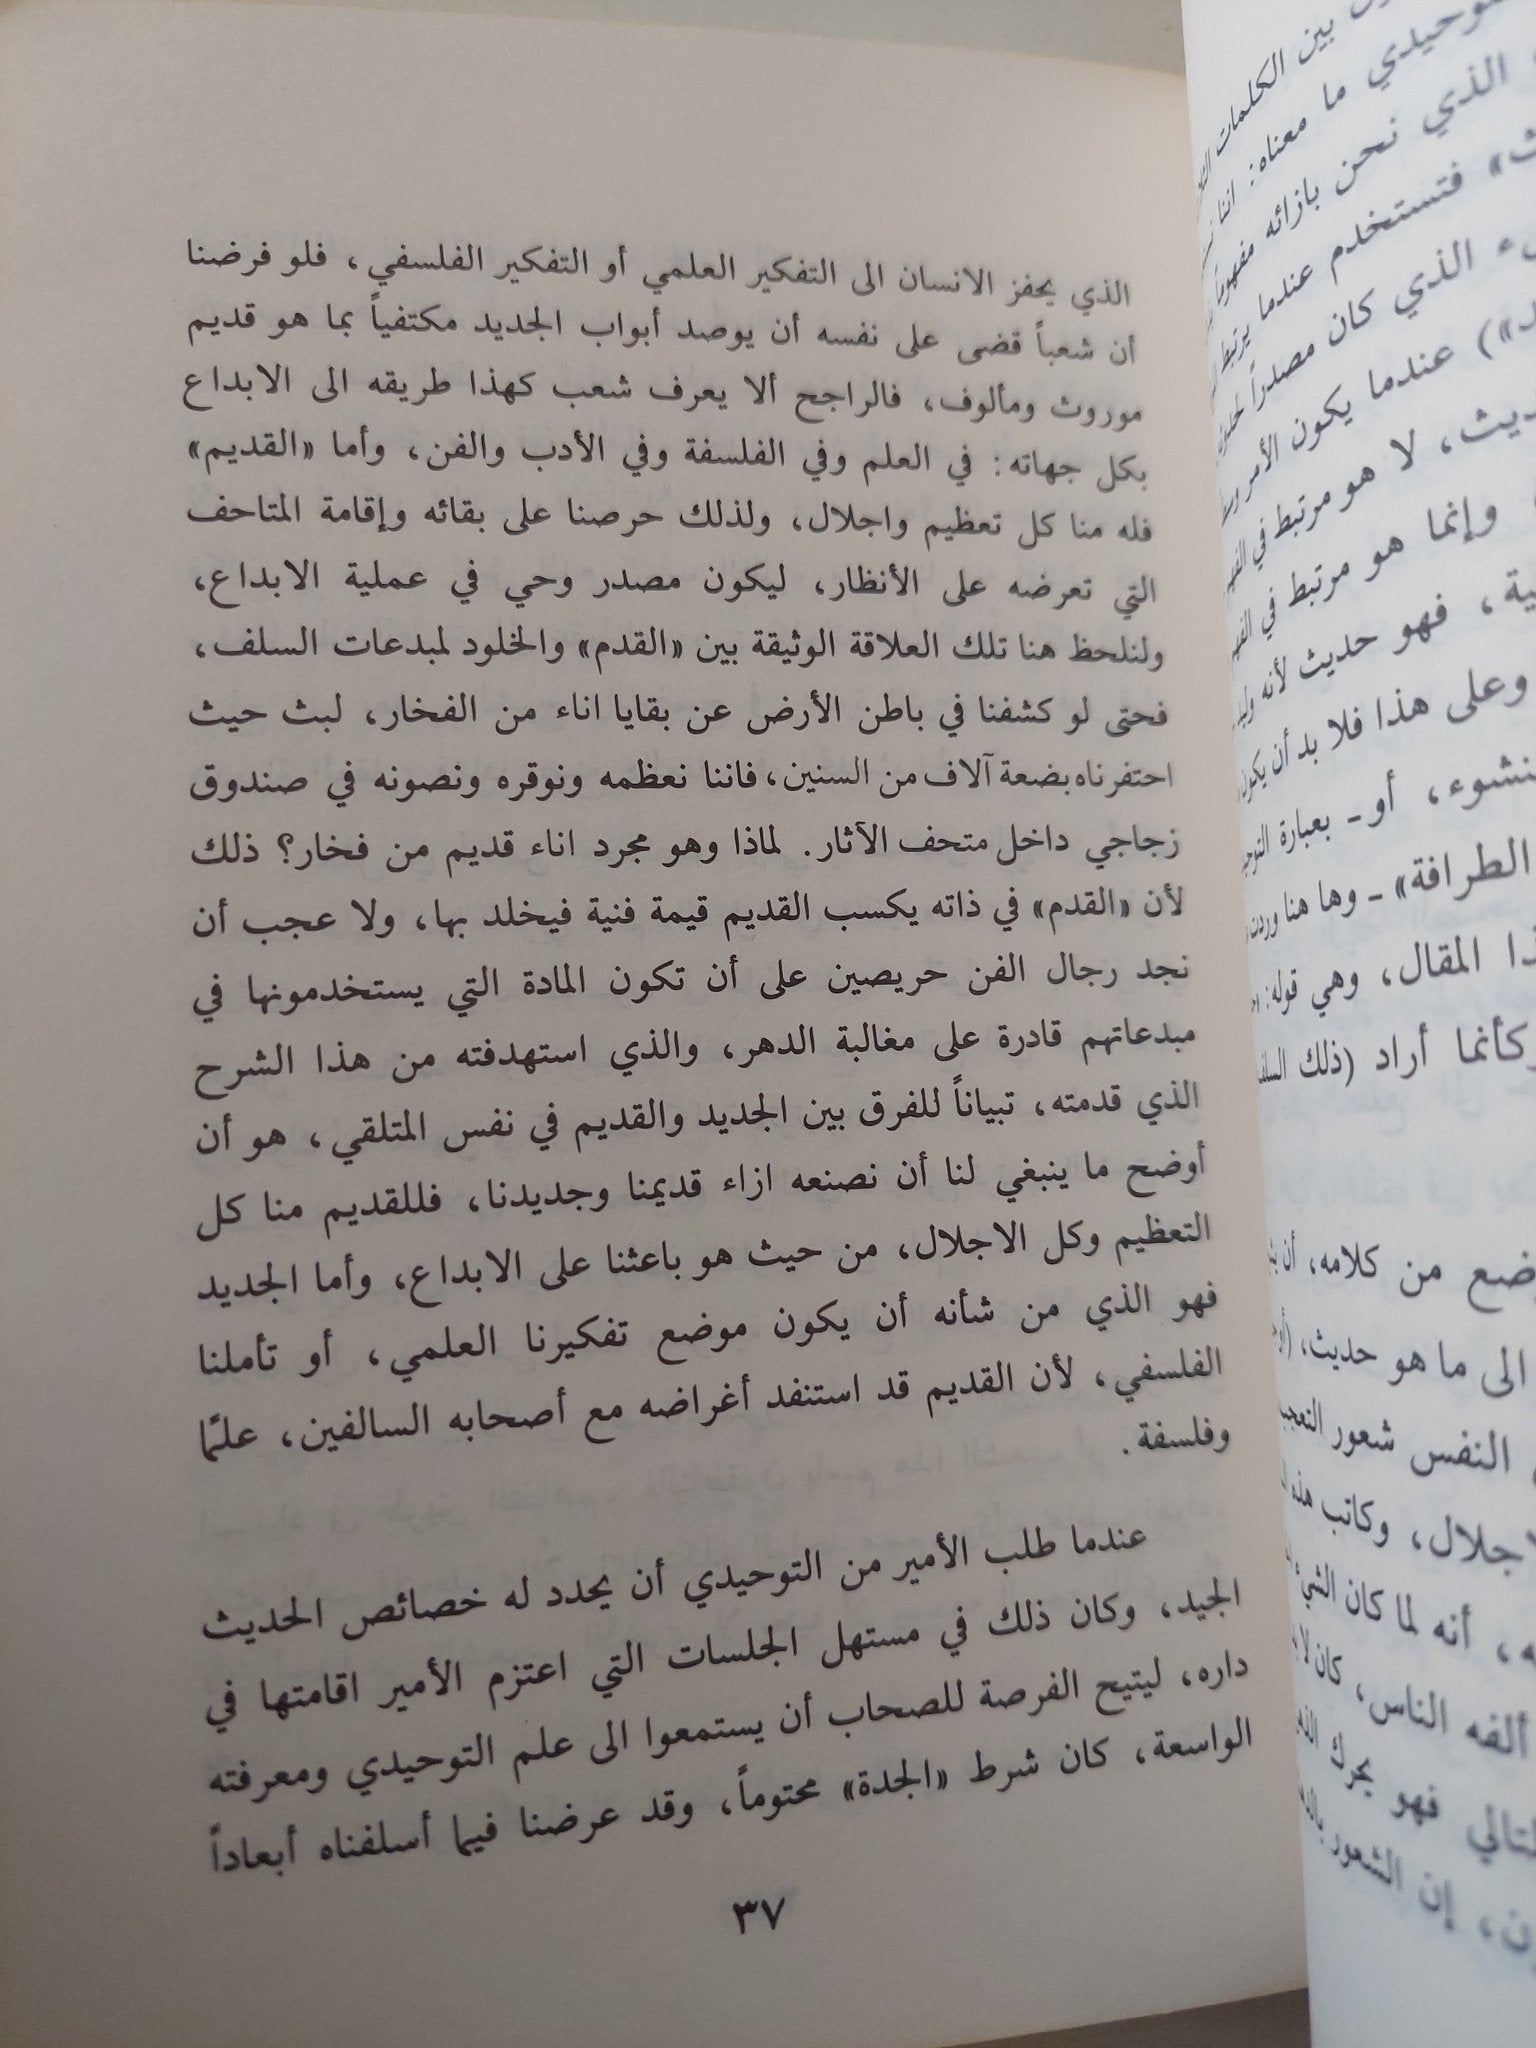 الذي يحفز الانسان الى التفكير العلمي أو التفكير الفلسفي، فلو فرضنا
أن شعباً قضى على نفسه أن يوصد أبواب الجديد مكتفياً بما هو قديم
موروث ومألوف، فالراجح ألا يعرف شعب كهذا طريقه الى الابداع
بكل جهاته: في العلم وفي الفلسفة وفي الأدب والفن، وأما «القديم»
فله منا كل تعظيم واجلال، ولذلك حرصنا على بقائه وإقامة المتاحف
التي تعرضه على الأنظار، ليكون مصدر وحي في عملية الابداع،
ولنلحظ هنا تلك العلاقة الوثيقة بين «القدم» والخلود لمبدعات السلف،
فحتى لو كشفنا في باطن الأرض عن بقايا اناء من الفخار، لبث حيث
احتفرناه بضعة آلاف من السنين، فاننا نعظمه ونوقره ونصونه في صندوق
زجاجي داخل متحف الآثار. لماذا وهو مجرد اناء قديم من فخار؟ ذلك
لأن «القدم» في ذاته يكسب القديم قيمة فنية فيخلد بها، ولا عجب أن
نجد رجال الفن حريصين على أن تكون المادة التي يستخدمونها في
مبدعاتهم قادرة على مغالبة الدهر، والذي استهدفته من هذا الشرح
الذي قدمته، تبياناً للفرق بين الجديد والقديم في نفس المتلقي، هو أن
أوضح ما ينبغي لنا أن نصنعه ازاء قديمنا وجديدنا، فللقديم منا كل
التعظيم وكل الاجلال، من حيث هو باعثنا على الابداع، وأما الجديد
فهو الذي من شأنه أن يكون موضع تفكيرنا العلمي، أو تأملنا
الفلسفي، لأن القديم قد استنفد أغراضه مع أصحابه السالفين، علمًا
وفلسفة.
عندما طلب الأمير من التوحيدي أن يحدد له خصائص الحديث
الجيد، وكان ذلك في مستهل الجلسات التي اعتزم الأمير اقامتها في
داره، ليتيح الفرصة للصحاب أن يستمعوا الى علم التوحيدي ومعرفته
الواسعة، كان شرط «الجدة» محتوماً، وقد عرضنا فيما أسلفناه أبعاداً
٣٧
بين الكلمات
ما معناه: اننا
الذي نحن بازائه مفهوماً
فتستخدم عندما يرتبط
الذي كان مصدراً
عندما يكون الأمر
لا هو مرتبط في
وإنما هو مرتبط في
فهو حديث لأنه
وعلى هذا فلا بد أن يكون
أو - بعبارة
الطرافة» - وها هنا وردت
المقال، وهي قوله:
أراد (ذلك
من كلامه، أن
الى ما هو حديث،
النفس شعور
وكاتب هذه
أنه لما كان الشيء
ألفه الناس، كان
فهو يحرك
إن الشعور